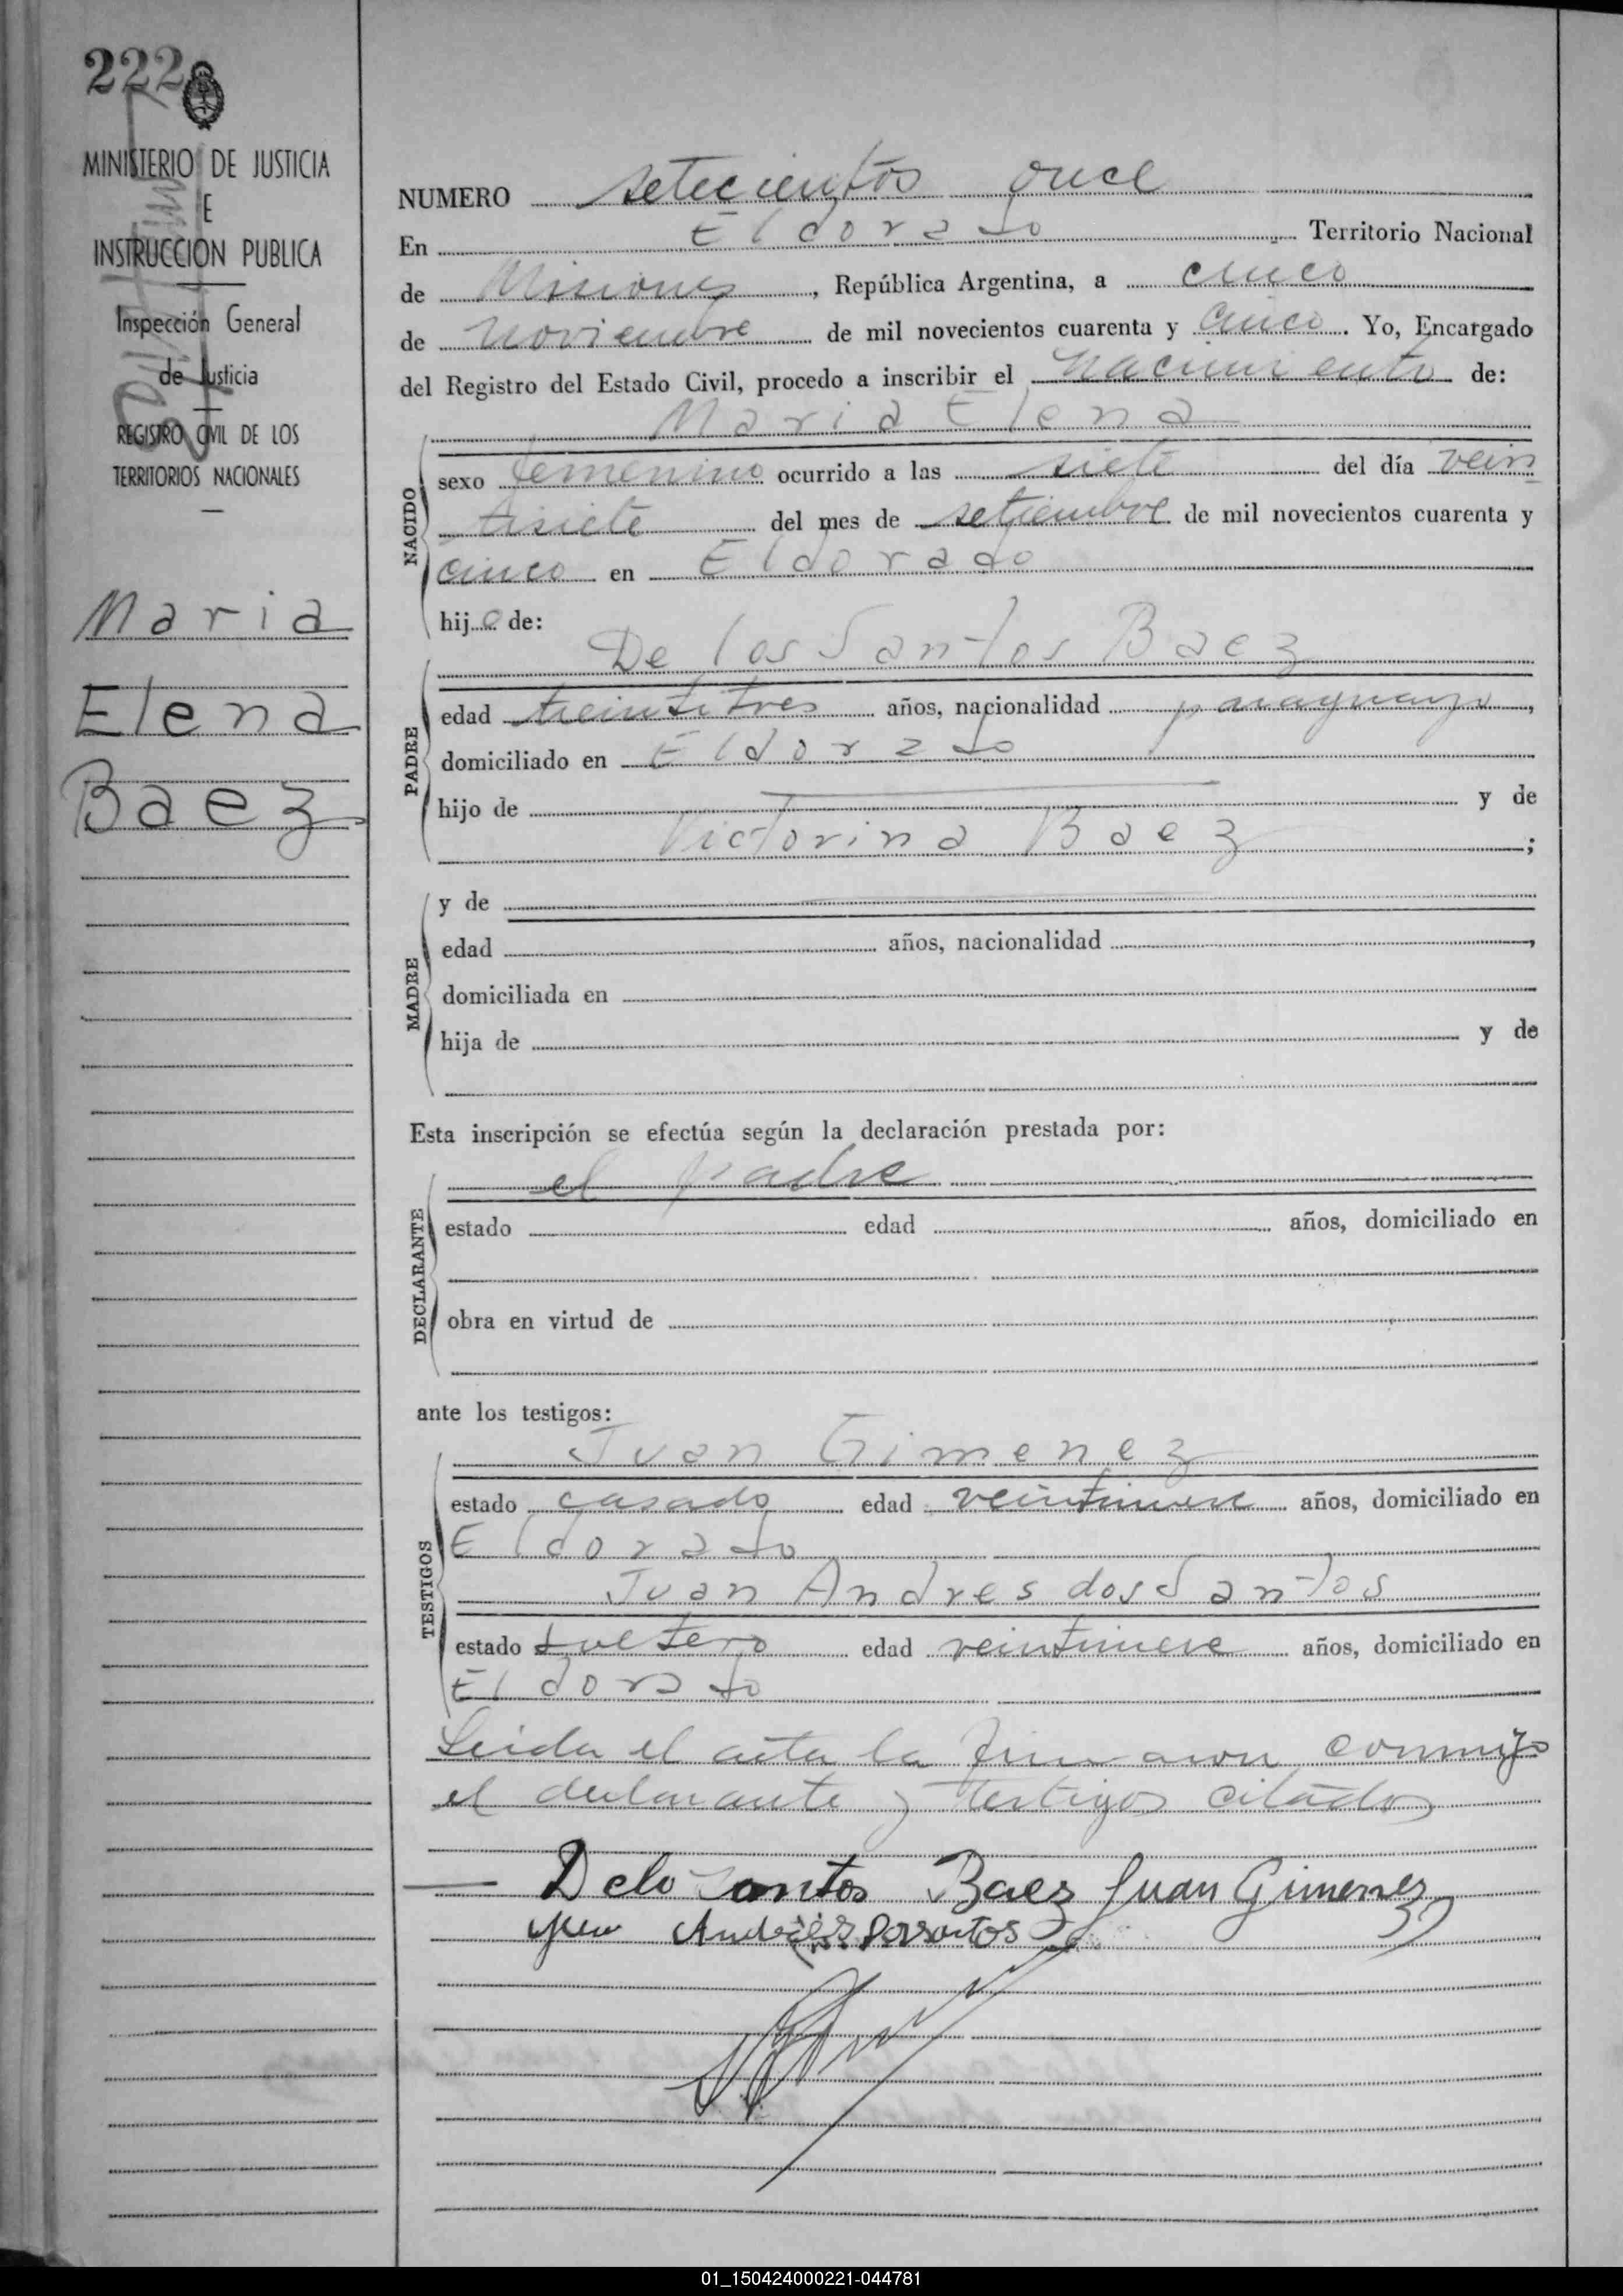 222
MINISTERIO DE JUSTICIA
E
INSTRUCCION PUBLICA
Inspección General
de Justicia
REGISTRO CIVIL DE LOS
TERRITORIOS NACIONALES
Maria
Elena
Baez
NUMERO setecientos once
En Eldorado Territorio Nacional
de Misiones, República Argentina, a cinco
de noviembre de mil novecientos cuarenta y cinco. Yo, Encargado
del Registro del Estado Civil, procedo a inscribir el nacimiento de:
Maria Elena
NACIDO
sexo femenino ocurrido a las siete del día vein
tisiete del mes de setiembre de mil novecientos cuarenta y
cinco en Eldorado
hij de:
De los Santos Baez
PADRE
edad treintitres años, nacionalidad paraguayo,
domiciliado en Eldorado
hijo de y de
Victorina Baez;
MADRE
y de
edad años, nacionalidad ,
domiciliada en
hija de y de
Esta inscripción se efectúa según la declaración prestada por:
el padre
DECLARANTE
estado edad años, domiciliado en
obra en virtud de
ante los testigos:
TESTIGOS
Juan Gimenez
estado casado edad veintinueve años, domiciliado en
Eldorado
Juan Andres dos Santos
estado soltero edad veintinueve años, domiciliado en
Eldorado
Leida el acta la firmaron conmigo
el declarante y testigos citados
Delo Santos Baez Juan Gimenez
Andres
01_150424000221-044781